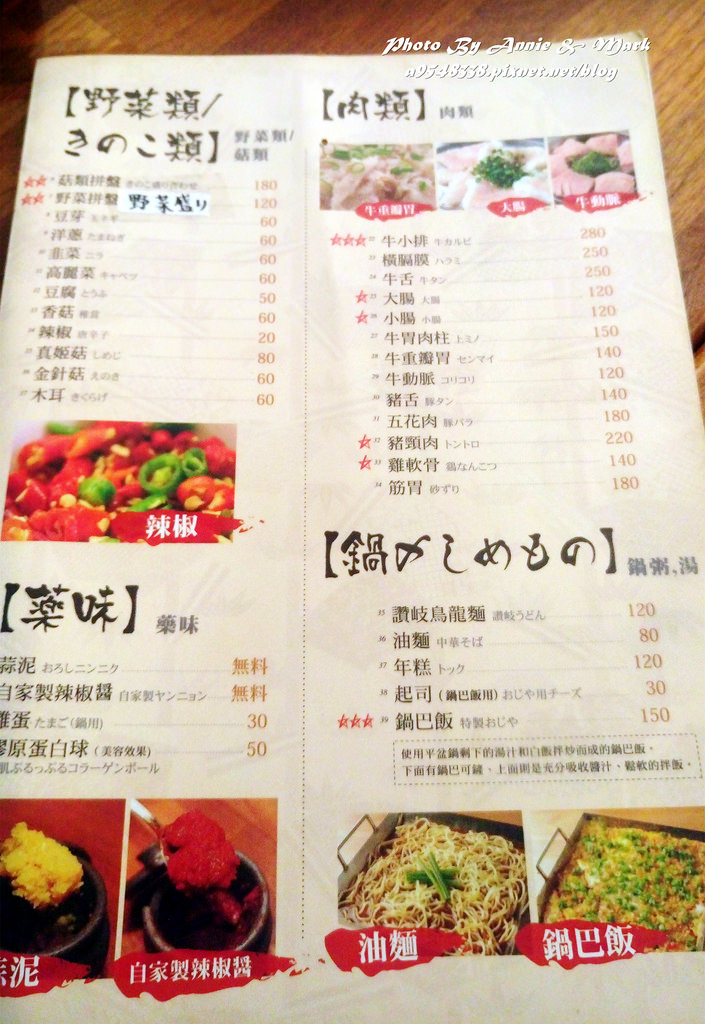 Photo By Annie & Mark
a9548338.pixnet.net/blog
【野菜類/
きのこ類】 野菜類/
菇類
菇類拼盤 きのこ盛り合わせ 180
野菜拼盤 野菜盛り 120
豆芽 60
洋蔥 たまねぎ 60
韭菜 ニラ 60
高麗菜 キャベツ 60
豆腐 とうふ 50
香菇 椎茸 60
辣椒 唐辛子 20
真姬菇 しめじ 80
金針菇 えのき 60
木耳 きくらげ 60
辣椒
【薬味】 藥味
蒜泥 おろしニンニク 無料
自家製辣椒醬 自家製ヤンニョン 無料
雞蛋 たまご(鍋用) 30
膠原蛋白球 (美容效果) 50
肌ぷるっぷるコラーゲンボール
蒜泥
自家製辣椒醬
【肉類】 肉類
牛重瓣胃
大腸
牛動脈
22 牛小排 牛カルビ 280
23 橫膈膜 ハラミ 250
24 牛舌 牛タン 250
25 大腸 大腸 120
26 小腸 小腸 120
27 牛胃肉柱 上ミノ 150
28 牛重瓣胃 センマイ 140
29 牛動脈 コリコリ 120
30 豬舌 豚タン 140
31 五花肉 豚バラ 180
32 豬頸肉 トントロ 220
33 雞軟骨 鶏なんこつ 140
34 筋胃 砂ずり 180
【鍋〆しめもの】 鍋粥,湯
35 讚岐烏龍麵 讃岐うどん 120
36 油麵 中華そば 80
37 年糕 トック 120
38 起司 (鍋巴飯用) おじや用チーズ 30
39 鍋巴飯 特製おじや 150
使用平盆鍋剩下的湯汁和白飯拌炒而成的鍋巴飯。
下面有鍋巴可鏟、上面則是充分吸收醬汁、鬆軟的拌飯。
油麵
鍋巴飯